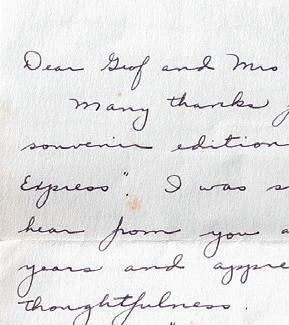 Dear Geof and Mrs
Many thanks f
souvenir edition
Express". I was s
hear from you a
years and appre
thoughtfulness.